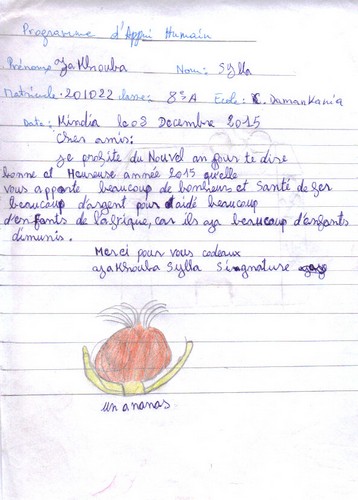 Programme d'Appui Humain
Prénoms aja Mnouba Nom: Sylla
Matricule. 201022 classe: 8è A Ecole: C. Damankania
Date: Kindia le 03 Decembre 2015
Cher amis:
je profite du Nouvel an pour te dire
bonne et Heureuse année 2015 qu'elle
vous apporte beaucoup de bonheur et Santé de fer
beaucoup d'argent pour d'aidé beaucoup
d'enfants de l'afrique, car ils aja beaucoup d'enfants
dimunis.
Merci pour vous cadeaux
aja Mnouba Sylla S'ingnature
un ananas